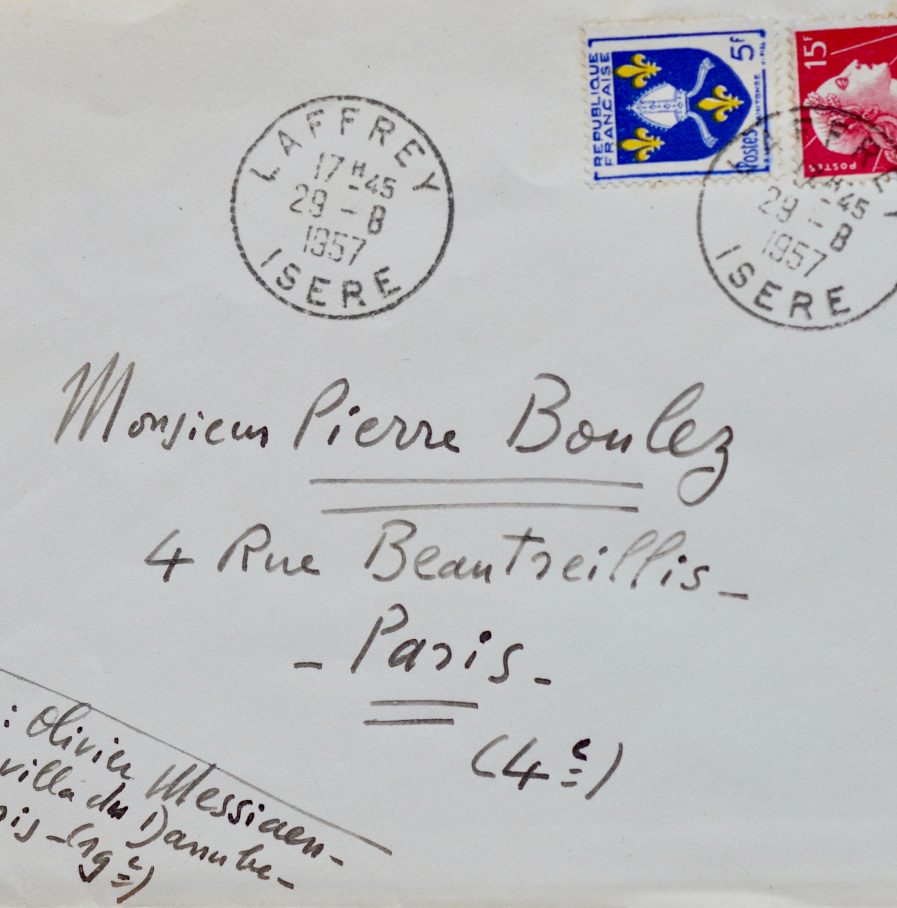 REPUBLIQUE
FRANÇAISE
5F
Postes
15F
POSTES
LAFFREY
17H-45
29-8
1957
ISERE
H
45
29-8
1957
ISERE
Monsieur Pierre Boulez
4 Rue Beautreillis-
- Paris -
(4e)
: Olivier Messiaen-
villa du Danube-
is-(19e)